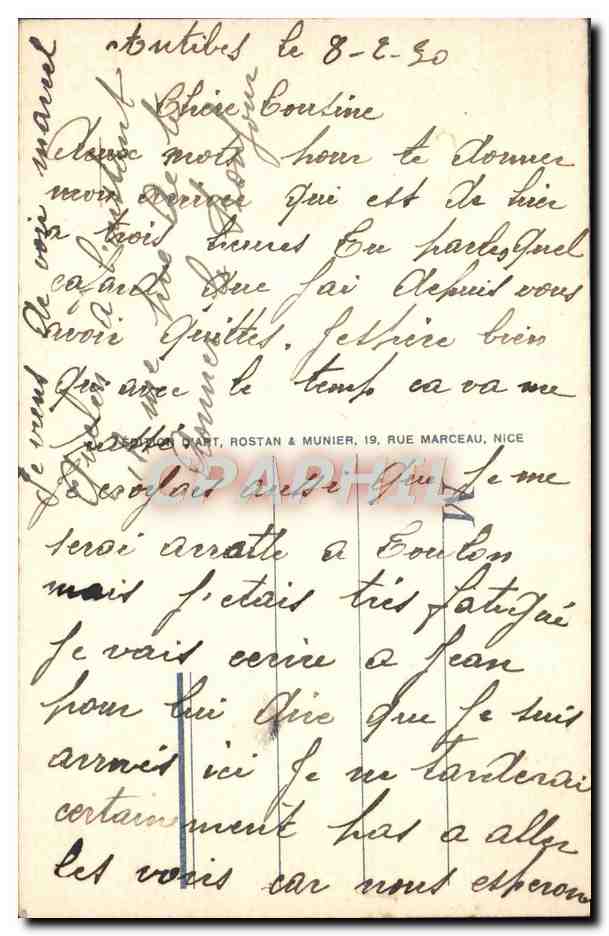 Antibes le 8-2-30
Chère Cousine
deux mots pour te donner
mon arrivée qui est de hier
a trois heures En parles quel
cafard que j'ai depuis vous
avoir quittes. J'espère bien
qu'avec le temp ca va me
EDITION D'ART, ROSTAN & MUNIER, 19, RUE MARCEAU, NICE
CPARPHIL
Je croyais aussi que Je me
serai arratte a Toulon
mais j'etais très fatigué
Je vais ecrire a Jean
pour lui dire que Je suis
arrivés ici Je ne tarderai
certainement pas a aller
les voirs car nous esperons
Je viens de voir marcel
a l'instant
il me
donne le bonjour